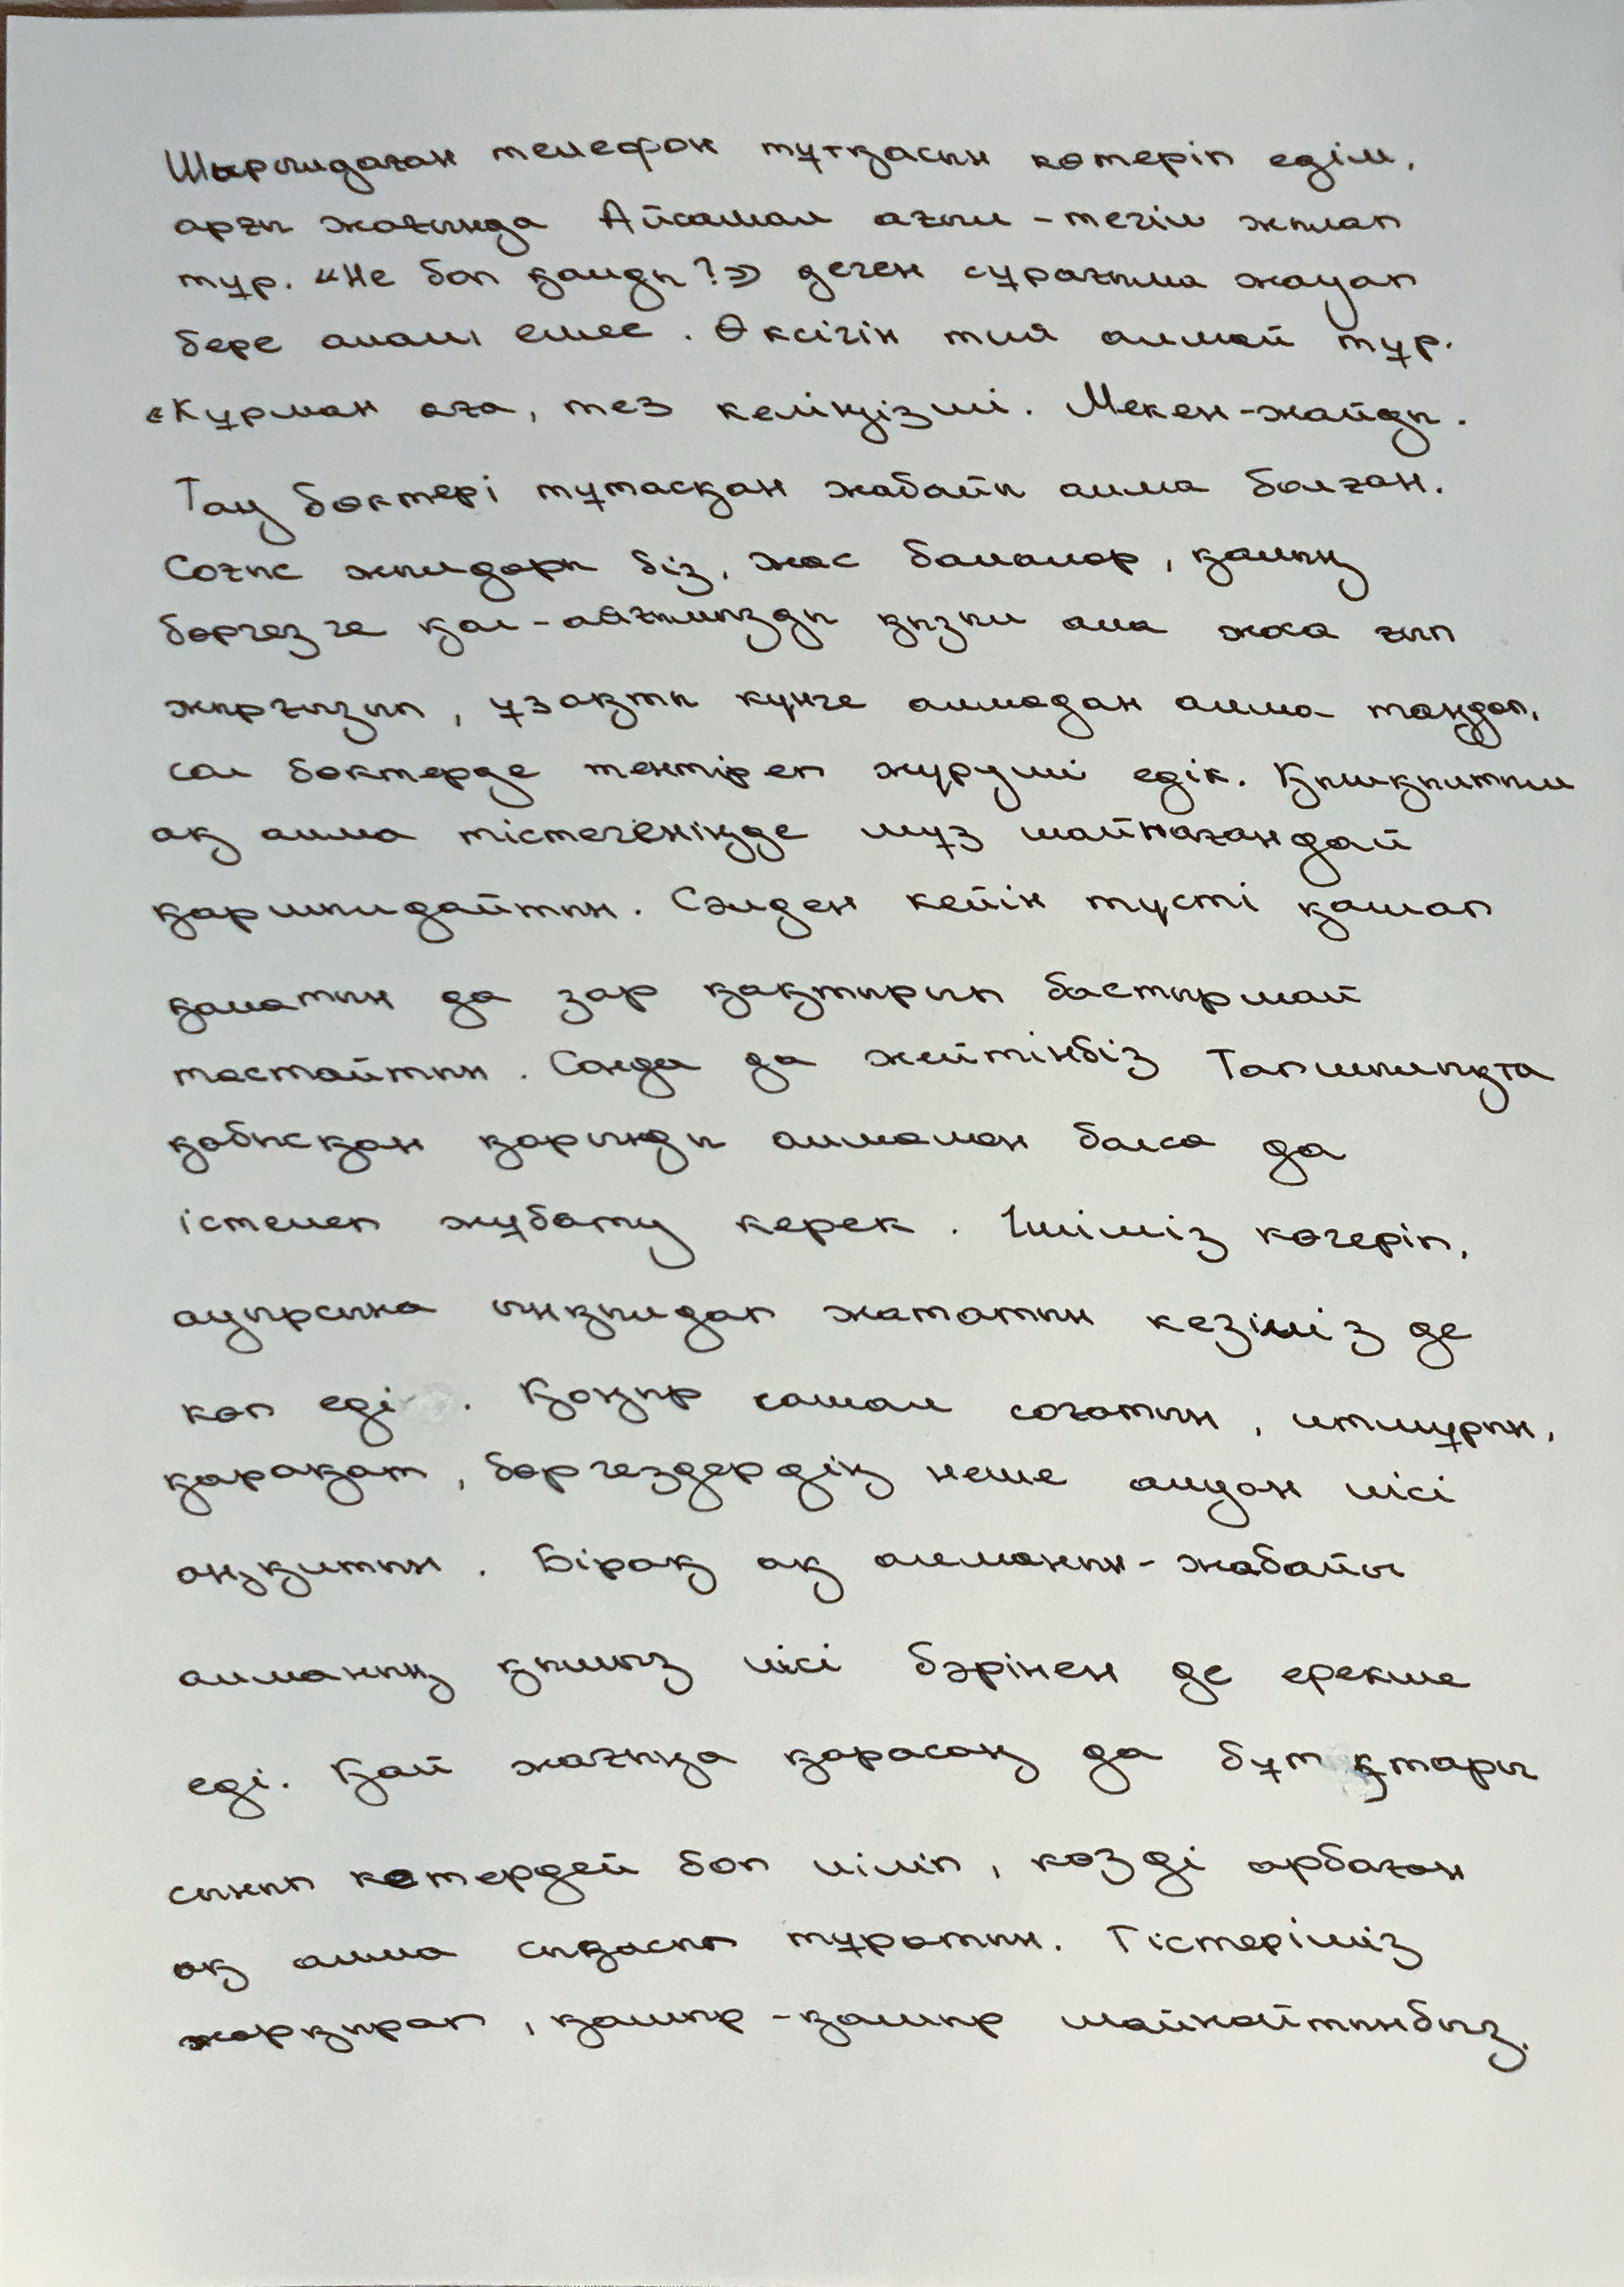 Шырылдаған телефон тұтқасын көтеріп едім,
арғы жағында Айсамал ағыл-тегіл жылап
тұр. «Не боп қалды?» деген сұрағыма жауап
бере алал емес. Өксігін тия алмай тұр.
«Құрман аға, тез келіңізші. Мекен-жайды.
Тау бөктері тұтасқан жабайы алма болған.
Соғыс жылдары біз, жас балалар, қалың
бөргезге қол-аяғымызды қызыл ала жоса ғып
жырғызып, ұзақты күнге алмадан алма таңдап,
сол бөктерде тентіреп жүруші едік. Қышқылтым
ақ алма тістегеніңде мұз шайнағандай
қаршылдайтын. Сәлден кейін түсті қашап
қаматын да зар қақтырып бастырмай
тастайтын. Сонда да жейтінбіз Тапшылықта
қабысқан қарынды алмамен болса да
істелеп жұбату керек. Ішіміз көгеріп,
ауырсына ыңқылдап жататын кезіміз де
көп еді. Қоңыр самал соғатын, итмұрын,
қарақат, бөргездердің неше алуан иісі
аңқитын. Бірақ ақ алманың-жабайы
алманың қымыз иісі бәрінен де ерекше
еді. Қай жағыңа қарасаң да бұтақтары
сынып кетердей боп иіліп, көзді арбаған
ақ алма сықасып тұратын. Тістеріміз
жарқырап, қашыр-қашыр шайнайтынбыз.